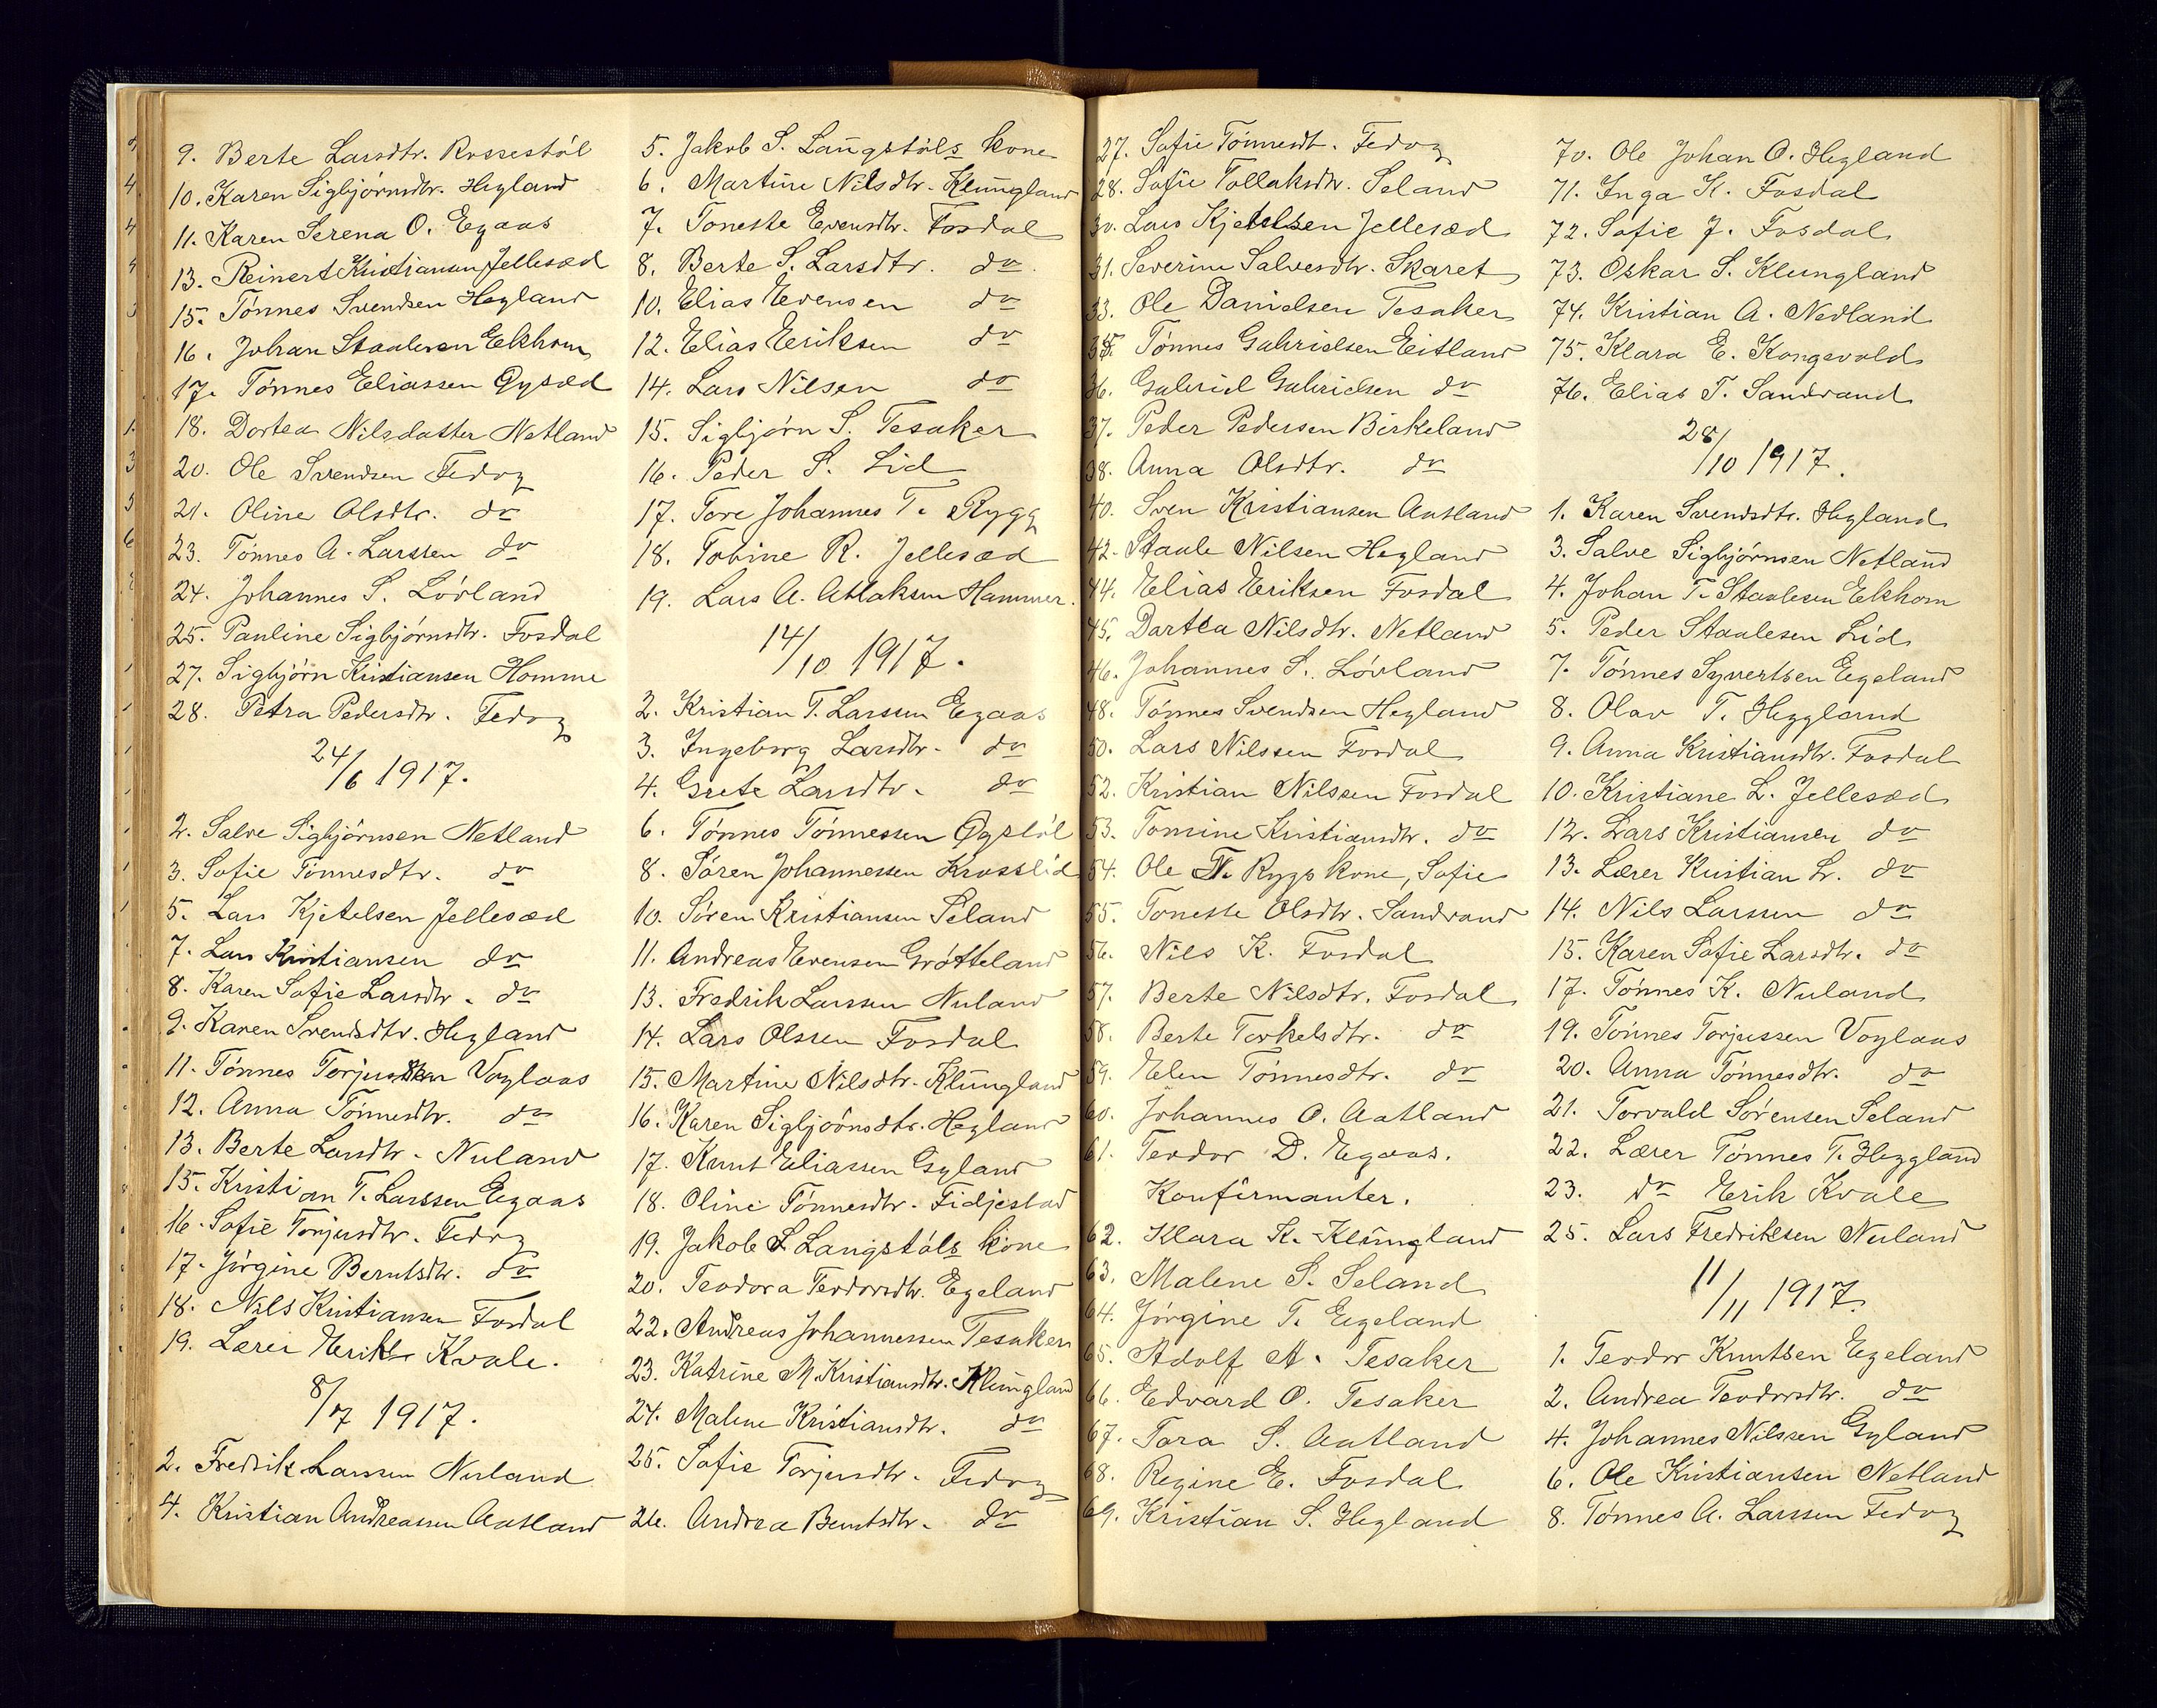 9. Berte Larsdtr. Rossestöl
10. Karen Sigbjörnsdtr. Hegland
11. Karen Serena O. Egaas
13. Reinert Kristiansen Jellesæd
15. Tönnes Svendsen Hegland
16. Johan Staalesen Eekhom
17. Tönnes Eliassen Øysæd
18. Dortea Nilsdatter Netland
20. Ole Svendsen Fedog
21. Oline Olsdtr. do
23. Tönnes A. Larssen do
24. Johannes S. Lövland
25. Pauline Sigbjörnsdtr. Fosdal
27. Sigbjörn Kristiansen Homme
28. Petra Pedersdtr. Fedog
24/6 1917.
2. Salve Sigbjörnsen Netland
3. Sofie Tönnesdtr. do
5. Lars Kjetelsen Jellesæd
7. Lars Kristiansen do
8. Karen Sofie Larsdtr. do
9. Karen Svendsdtr. Hegland
11. Tönnes Torjussen Voglaas
12. Anna Tönnesdtr. do
13. Berte Larsdtr. Nuland
15. Kristian T. Larssen Egaas
16. Sofie Torjusdtr. Fedog
17. Jörgine Berntsdtr. do
18. Nils Kristiansen Fosdal
19. Lærer Erik Kvale.
8/7 1917.
2. Fredrik Larssen Nuland
4. Kristian Andreassen Aatland
5. Jakob S. Langstöls kone
6. Martine Nilsdtr. Klungland
7. Toneste Evensdtr. Fosdal
8. Berte S. Larsdtr. do
10. Elias Evensen do
12. Elias Eriksen do
14. Lars Nilsen do
15. Sigbjörn S. Tesaker
16. Peder S. Lid
17. Tore Johannes T. Rygg
18. Tobine R. Jellesæd
19. Lars A. Atlaksen Hammer.
14/10 1917.
2. Kristian T. Larssen Egaas
3. Ingeborg Larsdtr. do
4. Grete Larsdtr. do
6. Tönnes Tönnessen Øgstöl
8. Sören Johannessen Krosslid
10. Sören Kristiansen Seland
11. Andreas Evensen Grötteland
13. Fredrik Larssen Nuland
14. Lars Olssen Fosdal
15. Martine Nilsdtr. Klungland
16. Karen Sigbjörnsdtr. Hegland
17. Knut Eliassen Gyland
18. Oline Tönnesdtr. Fidjestad
19. Jakob S Langstöls kone
20. Teodora Teodorsdtr. Egeland
22. Andreas Johannessen Tesaker
23. Katrine M. Kristiansdtr. Klungland
24. Malene Kristiansdtr. do
25. Sofie Torjusdtr. Fedog
26. Andrea Berntsdtr. do
27. Sofie Tönnesdt. Fedog
28. Sofie Tollaksdtr. Seland
30. Lars Kjetelsen Jellesæd
31. Severine Salvesdtr. Skaret
33. Ole Danielsen Tesaker
35. Tönnes Gabrielsen Eitland
36. Gabriel Gabrielsen do
37. Peder Pedersen Birkeland
38. Anna Olsdtr. do
40. Sven Kristiansen Aatland
42. Staale Nilsen Hegland
44. Elias Eriksen Fosdal
45. Dortea Nilsdtr. Netland
46. Johannes S. Lövland
48. Tönnes Svendsen Hegland
50. Lars Nilssen Fosdal
52. Kristian Nilssen Fosdal
53. Tomine Kristiansdtr. do
54. Ole N. Ryggs kone, Sofie
55. Toneste Olsdtr. Sandvand
56. Nils K. Fosdal
57. Berte Nilsdtr. Fosdal
58. Berte Torkelsdtr. do
59. Elen Tönnesdtr. do
60. Johannes O. Aatland
61. Teodor D. Egaas.
Konfirmanter.
62. Klara K. Klungland
63. Malene S. Seland
64. Jörgine T. Egeland
65. Adolf A. Tesaker
66. Edvard O. Tesaker
67. Tora S. Aatland
68. Regine E. Fosdal
69. Kristian S. Hegland
70. Ole Johan O. Hegland
71. Inga K. Fosdal
72. Sofie J. Fosdal
73. Oskar S. Klungland
74. Kristian A. Nedland
75. Klara E. Kongevold
76. Elias T. Sandvand
28/10 1917.
1. Karen Svendsdtr. Hegland
3. Salve Sigbjörnsen Netland
4. Johan T. Staalesen Eekhom
5. Peder Staalesen Lid
7. Tönnes Syvertsen Egeland
8. Olav T. Heggland
9. Anna Kristiansdtr. Fosdal
10. Kristiane L. Jellesæd
12. Lars Kristiansen do
13. Lærer Kristian L. do
14. Nils Larssen do
15. Karen Sofie Larsdtr. do
17. Tönnes K. Nuland
19. Tönnes Torjussen Voglaas
20. Anna Tönnesdtr. do
21. Torvald Sörensen Seland
22. Lærer Tönnes T. Heggland
23. do Erik Kvale
25. Lars Fredriksen Nuland
11/11 1917.
1. Teodor Knutsen Egeland
2. Andrea Teodorsdtr. do
4. Johannes Nilssen Gyland
6. Ole Kristiansen Netland
8. Tönnes A. Larssen Fedog